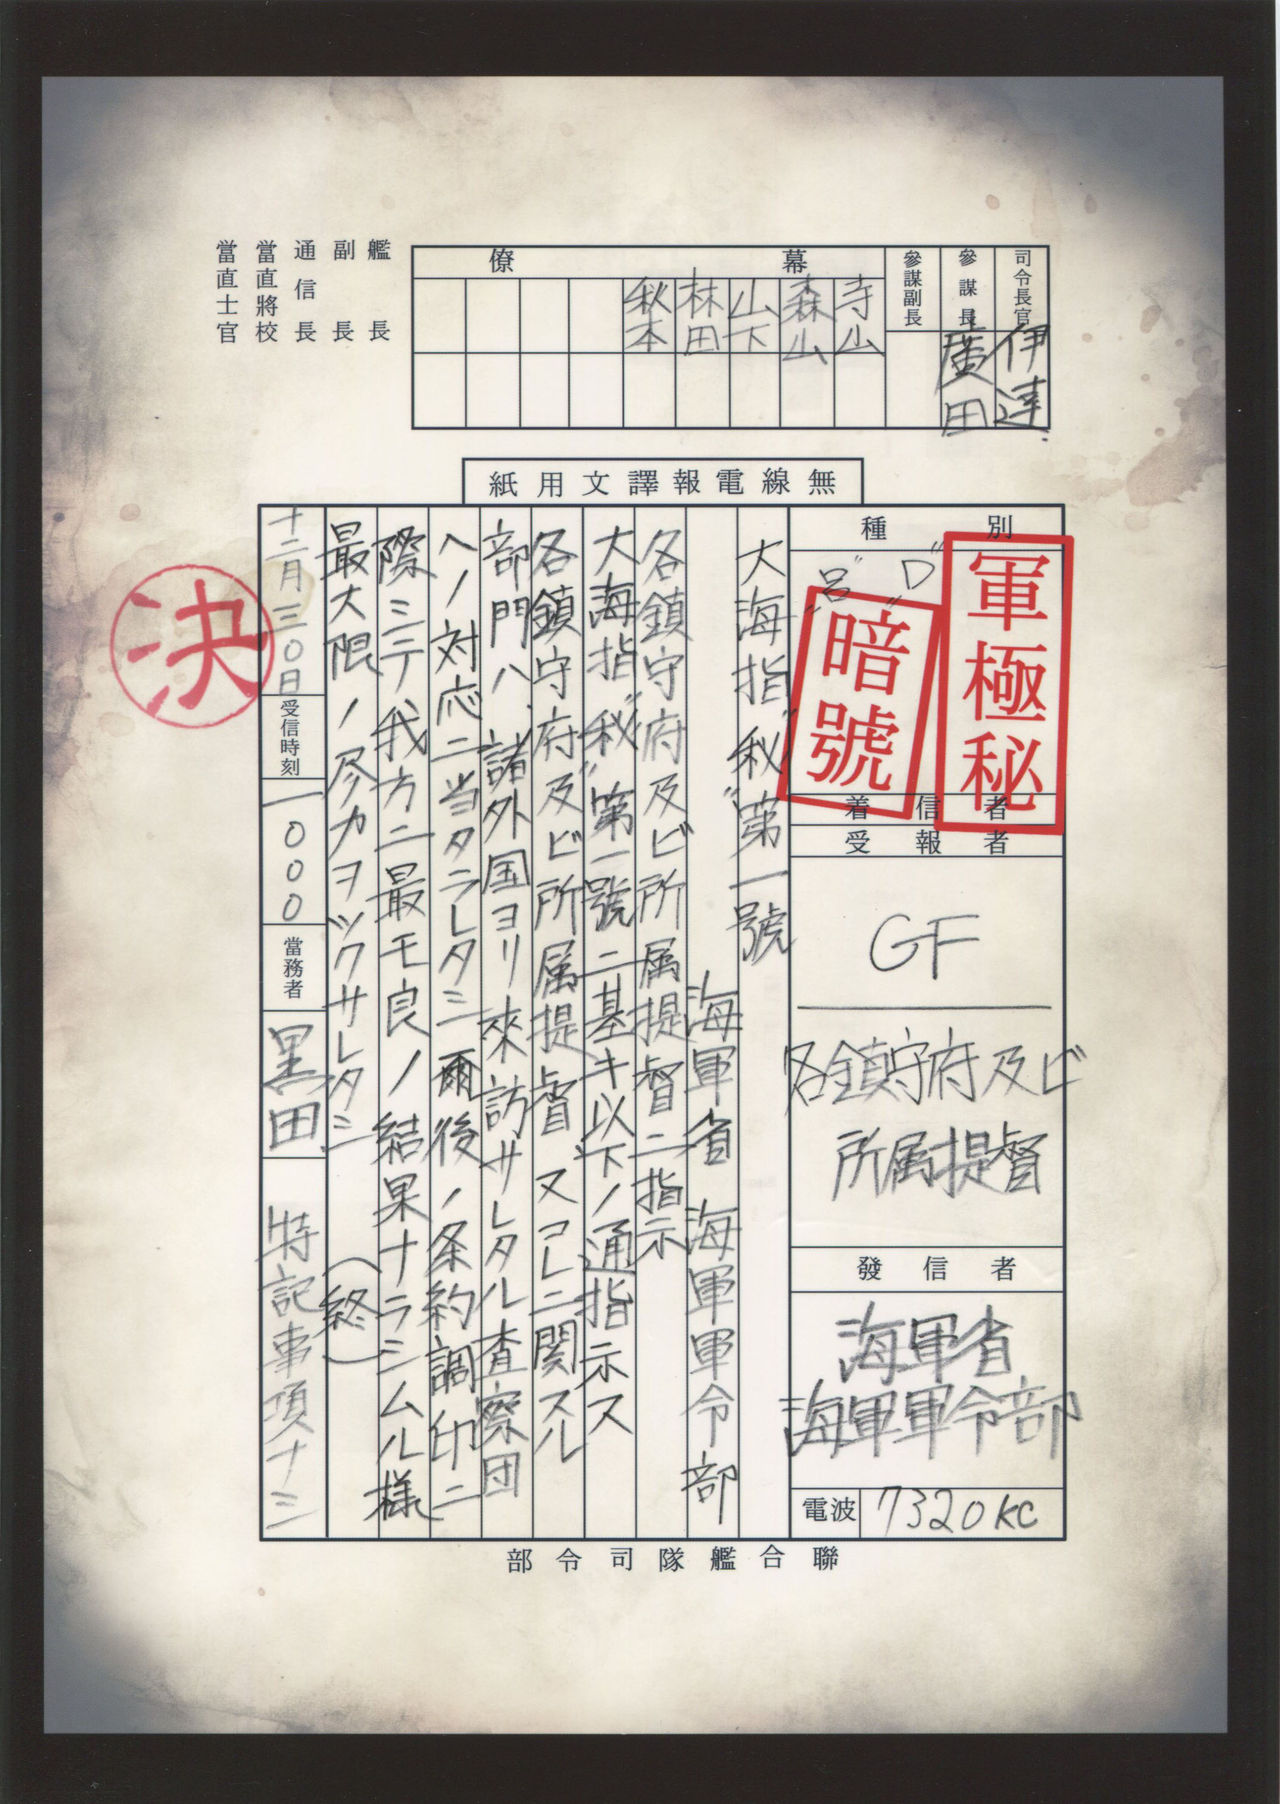 司令長官
伊達
參謀長
廣田
參謀副長
幕僚
寺山
森山
山下
林田
秋本
艦長
副長
通信長
當直將校
當直士官
無線電報譯文用紙
種別
"呂" "D"
軍極秘
暗號
着信者
受報者
GF
各鎮守府及ビ
所属提督
發信者
海軍省
海軍軍令部
電波
7320KC
大海指"秘"第一號
海軍省 海軍軍令部
各鎮守府及ビ所属提督ニ指示
大海指"秘"第一號ニ基キ以下ノ通指示ス
各鎮守府及ビ所属提督、又コレニ関スル
部門ハ、諸外国ヨリ來訪サレタル査察団
ヘノ対応ニ当タラレタシ 爾後ノ条約調印ニ
際シテ我方ニ最モ良ノ結果ナラシムル様
最大限ノ尽力ヲツクサレタシ (終)
十二月三〇日
受信時刻
一000
當務者
黒田
特記事項ナシ
決
聯合艦隊司令部